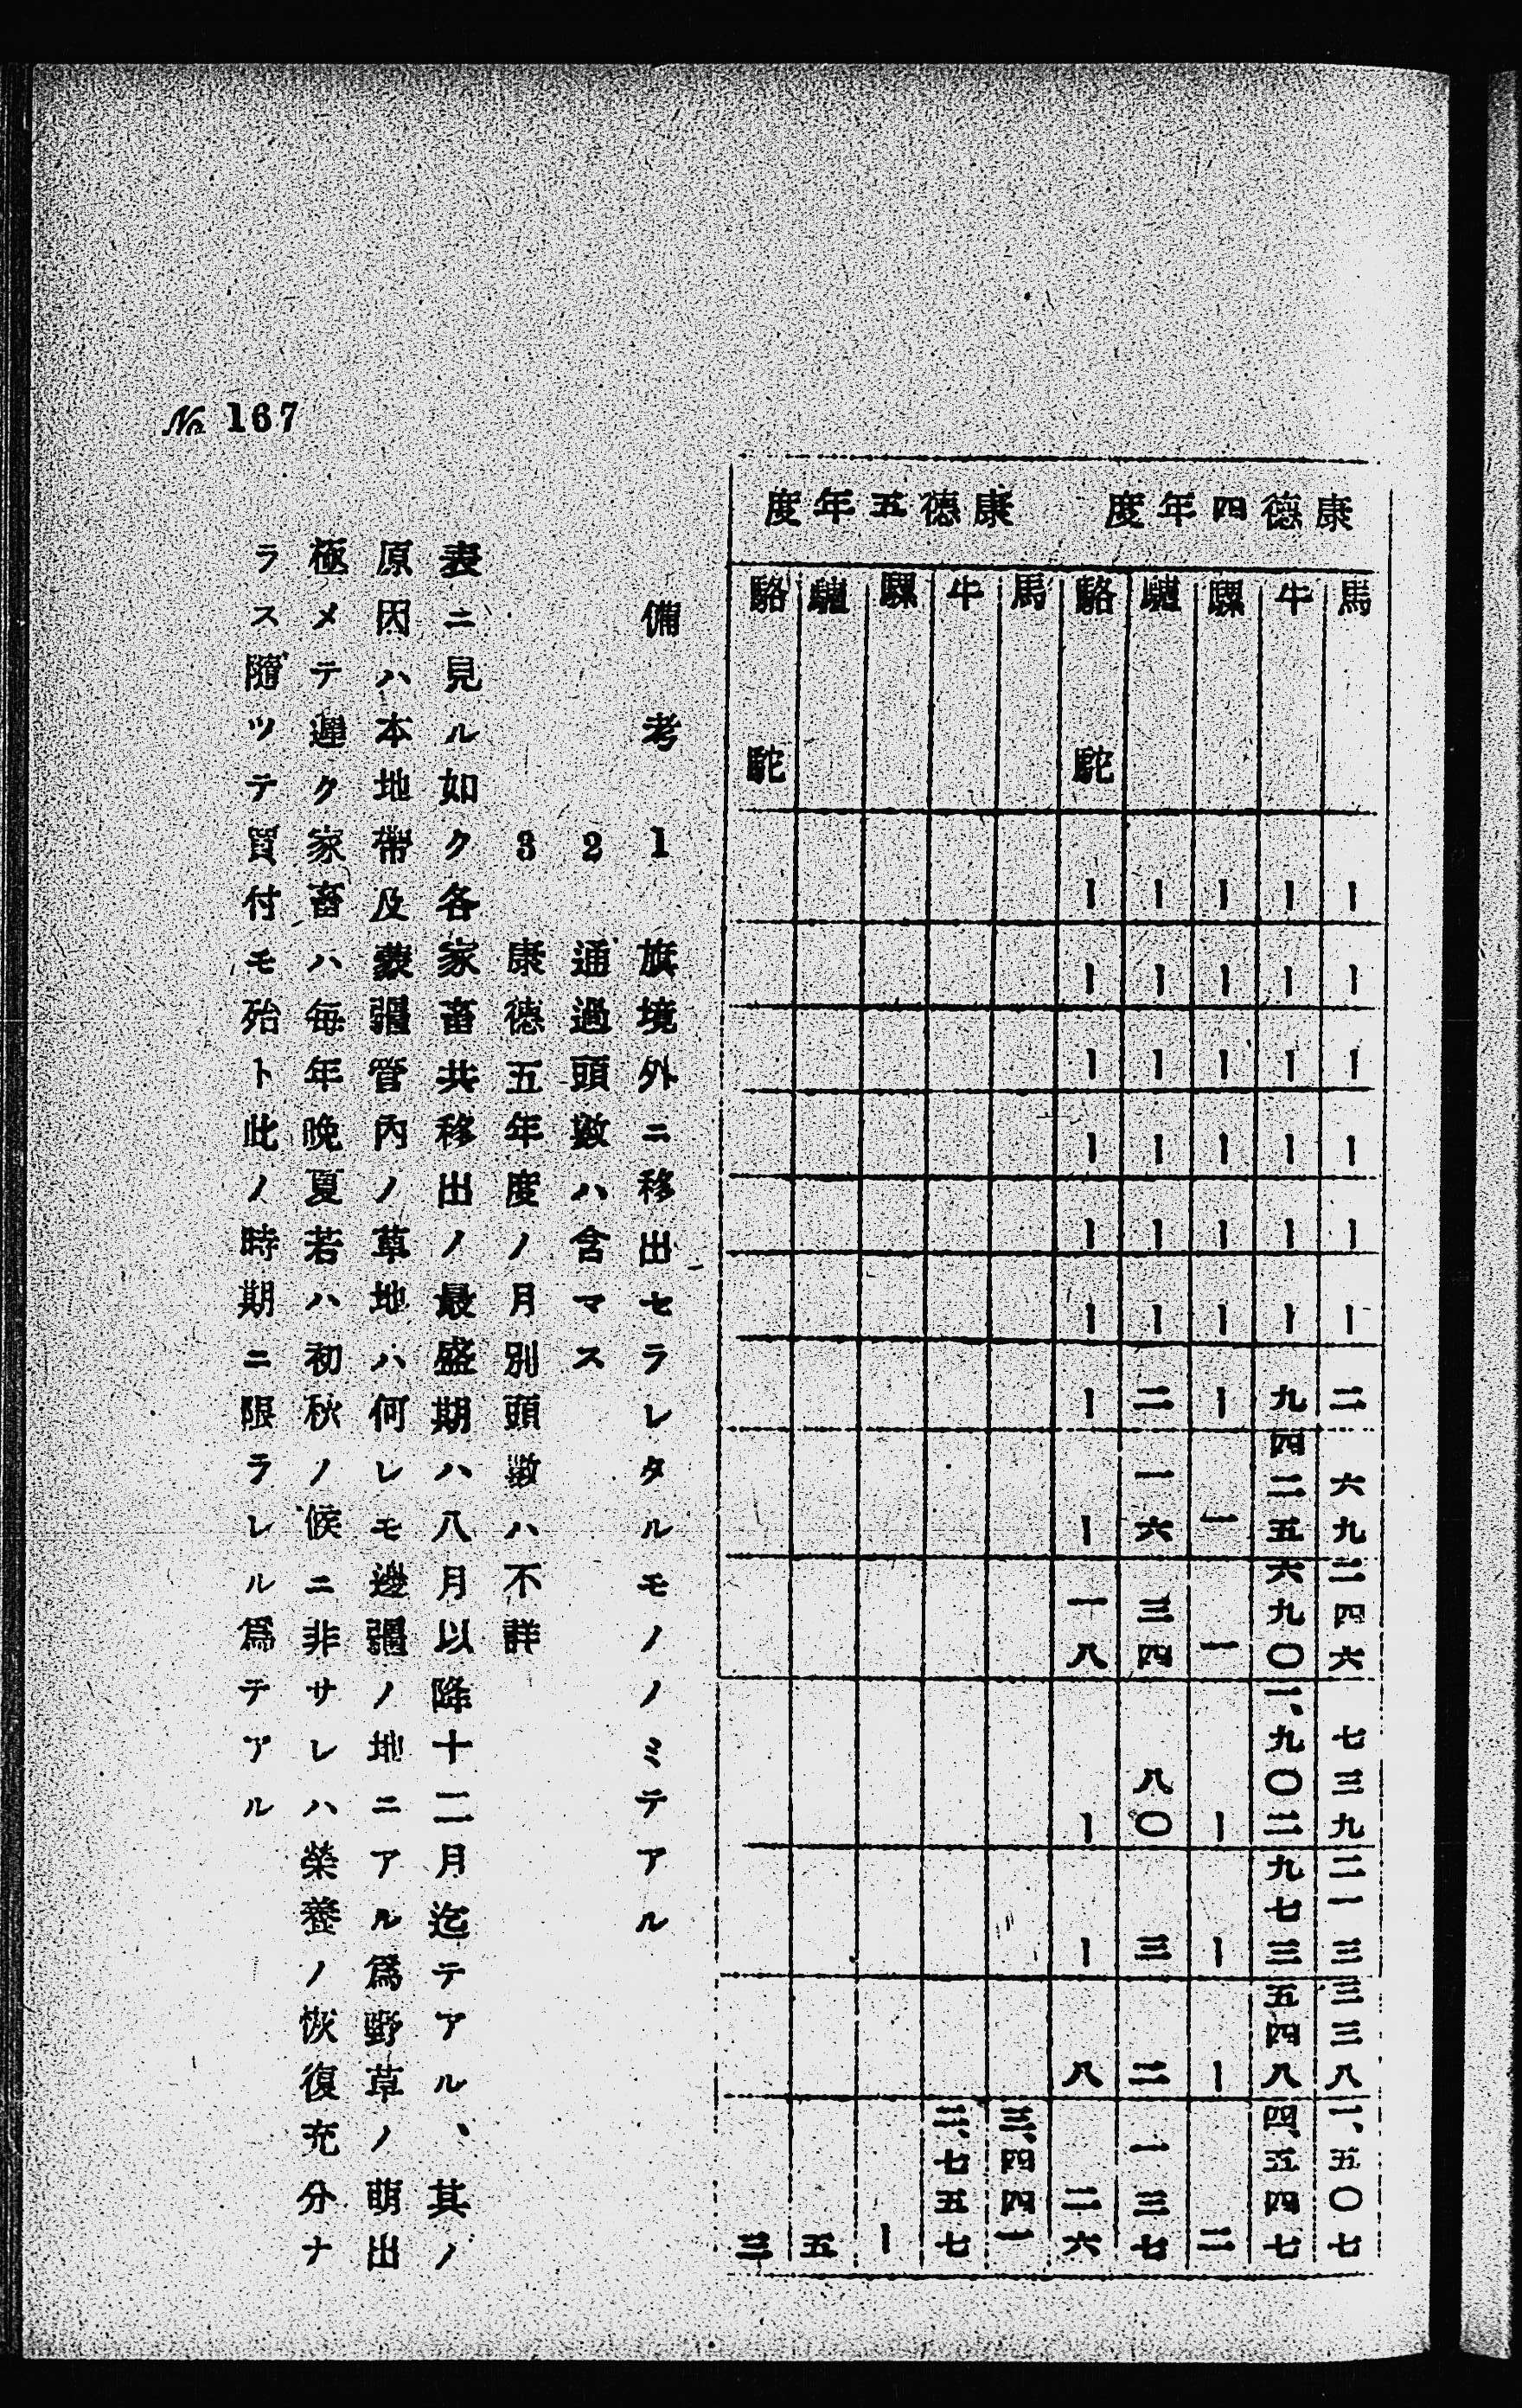 康德四年度
馬 ｜ ｜ ｜ ｜ ｜ ｜ 二 六九 二四六 七三九 二一三 三三八 一、五〇七
牛 ｜ ｜ ｜ ｜ ｜ ｜ 九 四二五 六九〇 一、九〇二 九七三 五四八 四、五四七
騾 ｜ ｜ ｜ ｜ ｜ ｜ ｜ 一 一 ｜ ｜ ｜ 二
驢 ｜ ｜ ｜ ｜ ｜ ｜ 二 一六 三四 八〇 三 二 一三七
駱駝 ｜ ｜ ｜ ｜ ｜ ｜ ｜ ｜ 一八 ｜ ｜ 八 二六
康德五年度
馬 三、四四一
牛 三、七五七
騾 ｜
驢 五
駱駝 三
備考 1 旗境外ニ移出セラレタルモノノミテアル
2 通過頭數ハ含マス
3 康德五年度ノ月別頭數ハ不詳
表ニ見ル如ク各家畜共移出ノ最盛期ハ八月以降十二月迄テアル、其ノ
原因ハ本地帶及蒙疆管內ノ草地ハ何レモ邊疆ノ地ニアル爲野草ノ萌出
極メテ遲ク家畜ハ每年晚夏若ハ初秋ノ候ニ非サレハ榮養ノ恢復充分ナ
ラス隨ツテ買付モ殆ト此ノ時期ニ限ラレル爲テアル
№ 167